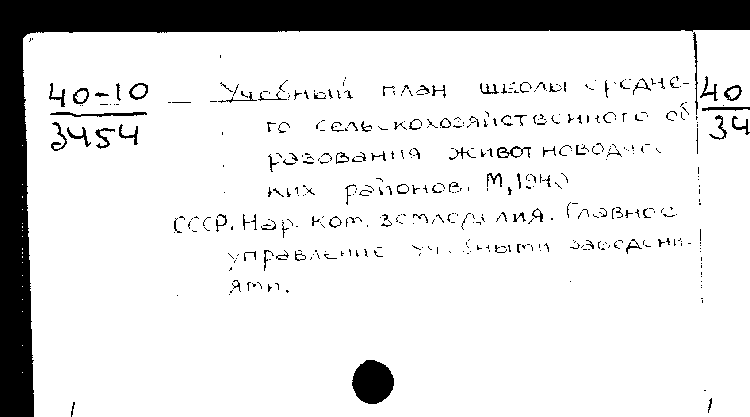 40-10
3454
Учебный план школы средне-
го сельскохозяйственного об
разования животноводчес
ких районов. М, 1940
СССР. Нар. ком. земледелия. Главное
управление учебными заведени-
ями.
40
34